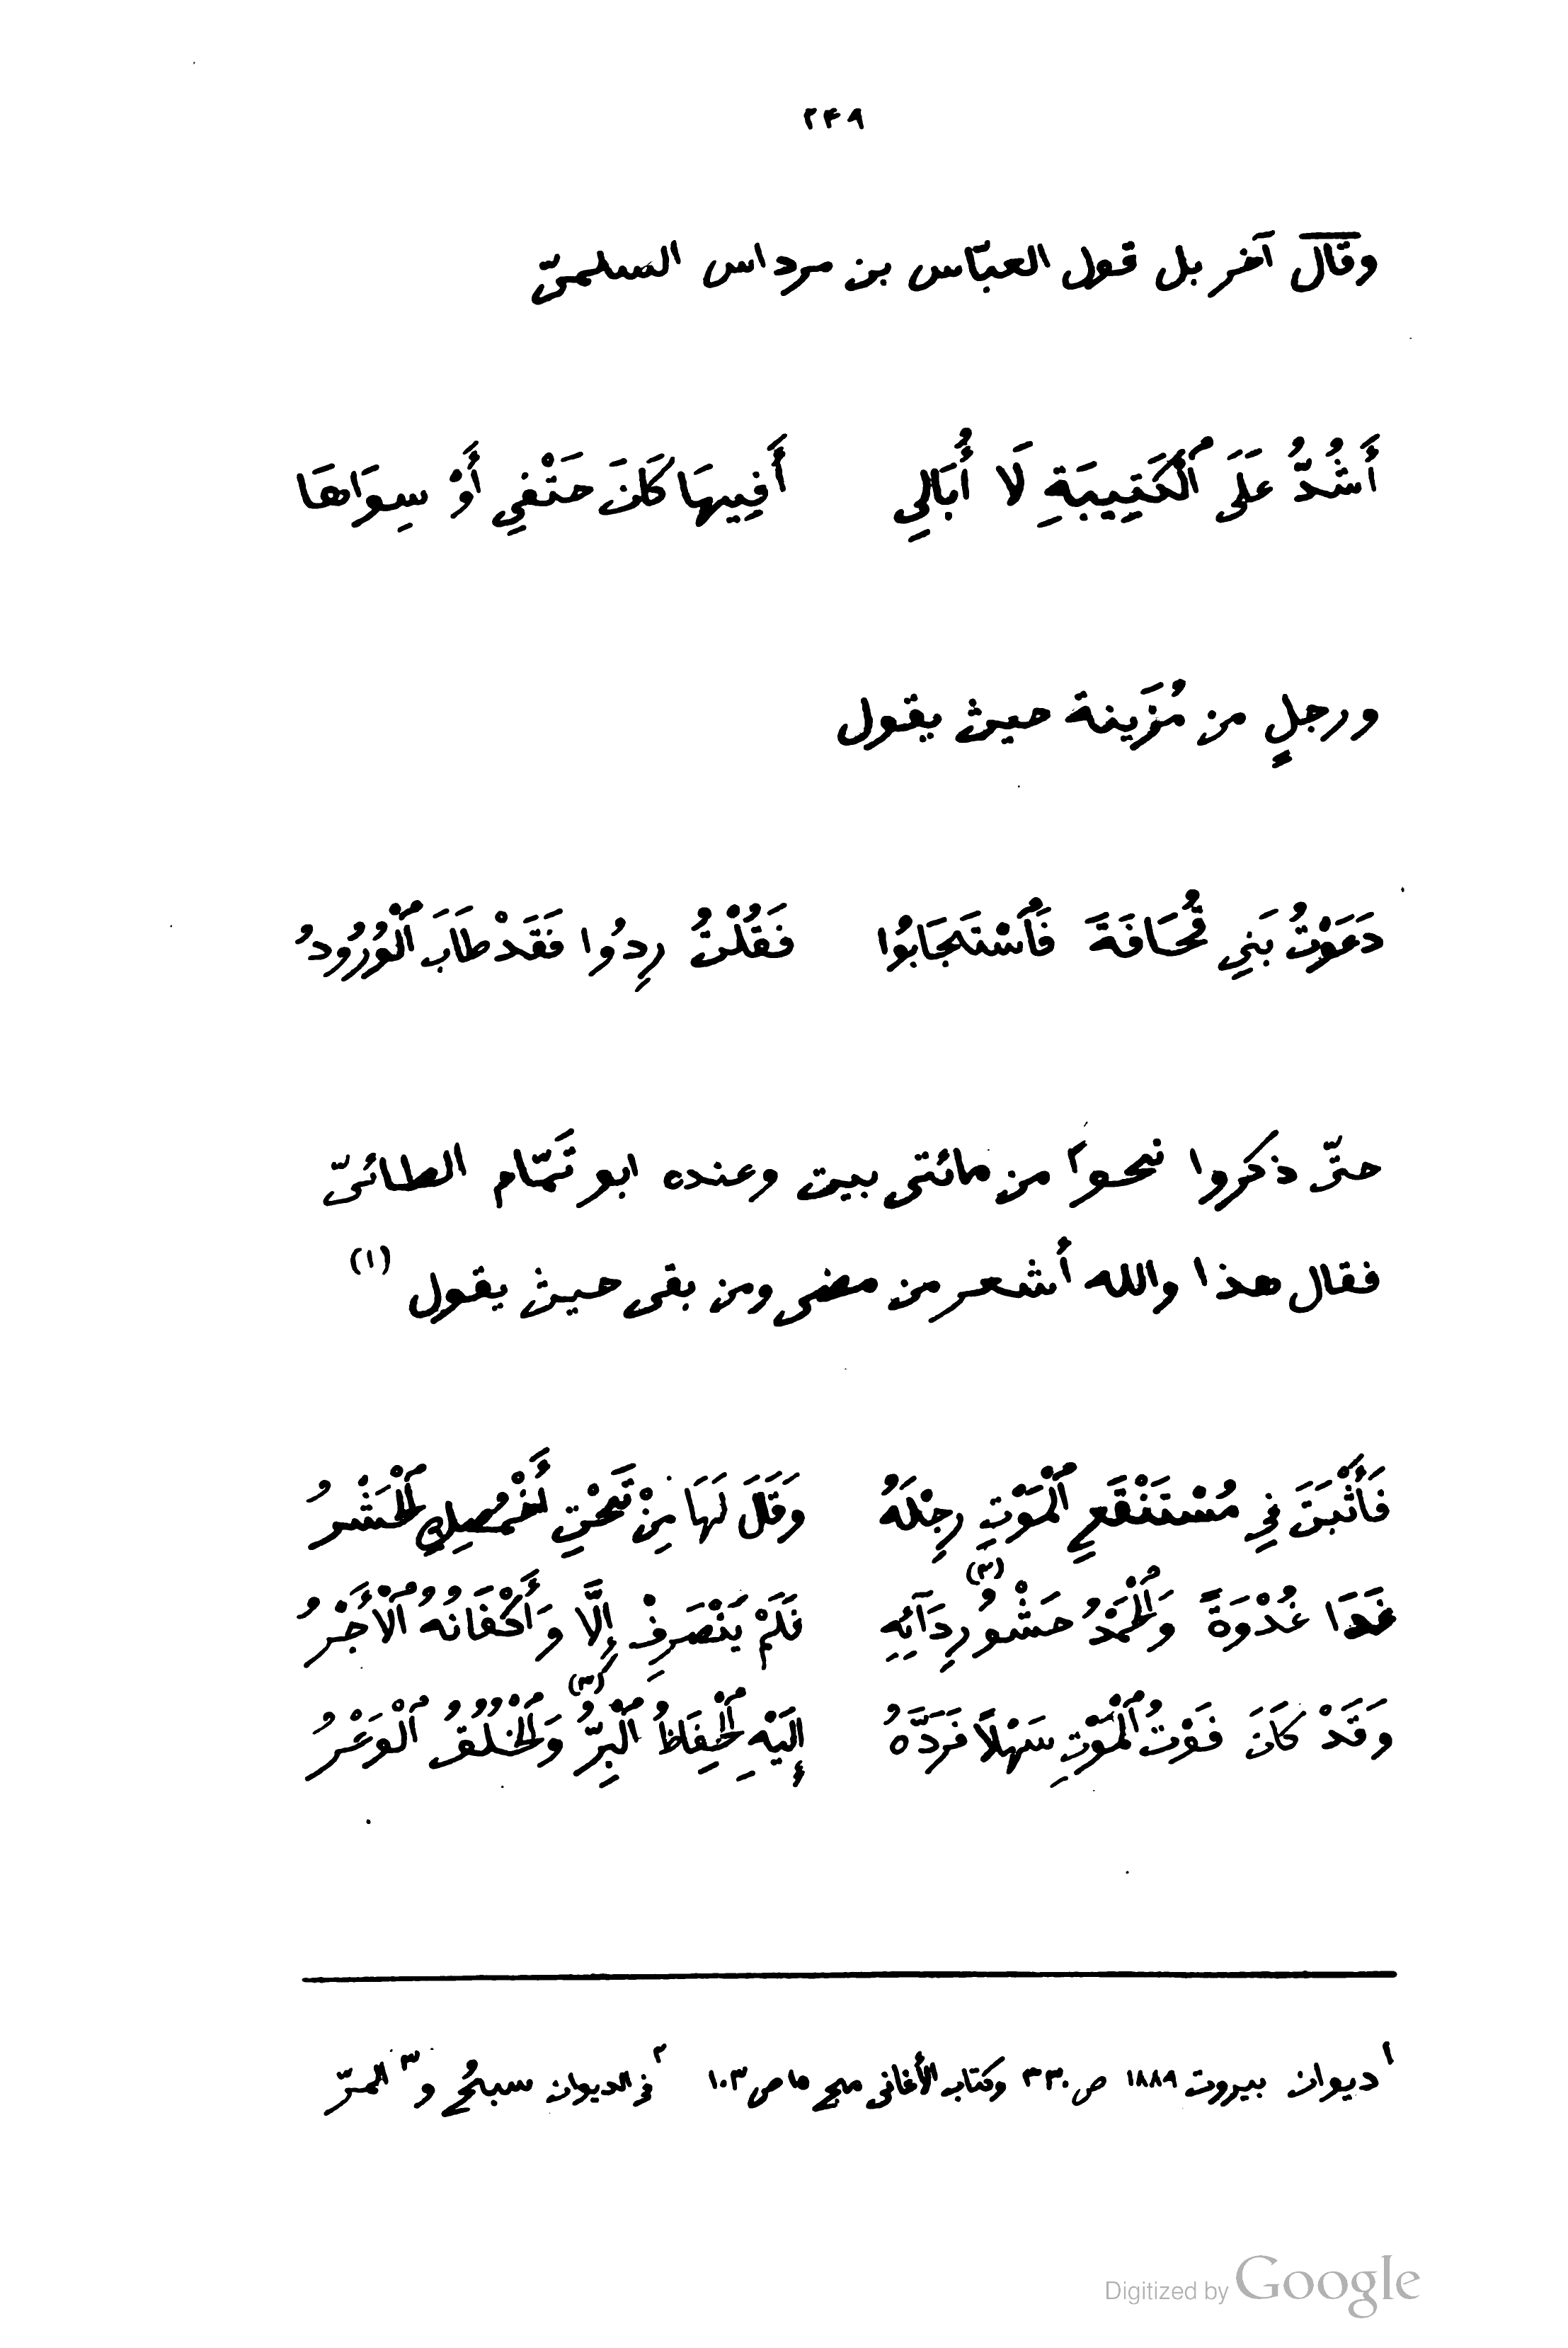 ٢٤٩
وقال آخر بل قول العبّاس بن مرداس السلمىّ
أَشُدُّ عَلَى ٱلْكَتِيبَةِ لَا أُبَالِي أَفِيهَا كَانَ حَتْفِي أَوْ سِوَاهَا
ورجلٍ من مُزَينة حيث يقول
دَعَوْتُ بَنِي قُحَافَةَ فَٱسْتَجَابُوا فَقُلْتُ رِدُوا فَقَدْ طَابَ ٱلْوُرُودُ
حتّى ذكروا نحواً من مائتى بيت وعنده ابو تَمّام الطائىّ
فقال هذا والله أشعر من مضى ومن بقى حيث يقول (١)
فَأَثْبَتَ فِي مُسْتَنْقَعِ ٱلْمَوْتِ رِجْلَهُ وَقَالَ لَهَا مِنْ تَحْتِ أَخْمُصِكِ ٱلْحَشْرُ
غَدَا غُدْوَةً وَٱلْحَمْدُ حَشْوُ (٢) رِدَآئِهِ فَلَمْ يَنْصَرِفْ إِلَّا وَأَكْفَانُهُ ٱلْأَجْرُ
وَقَدْ كَانَ فَوْتُ ٱلْمَوْتِ سَهْلاً فَرَدَّهُ إِلَيْهِ ٱلْحِفَاظُ ٱلْبِرُّ (٣) وَٱلْخُلُقُ ٱلْوَعْرُ
١ ديوان بيروت ١٨٨٩ ص ٣٣٠ وكتاب الأغانى مج ١٥ ص ١٠٣ ٢ فى الديوان سبحُ و ٣ المرّ
Digitized by Google